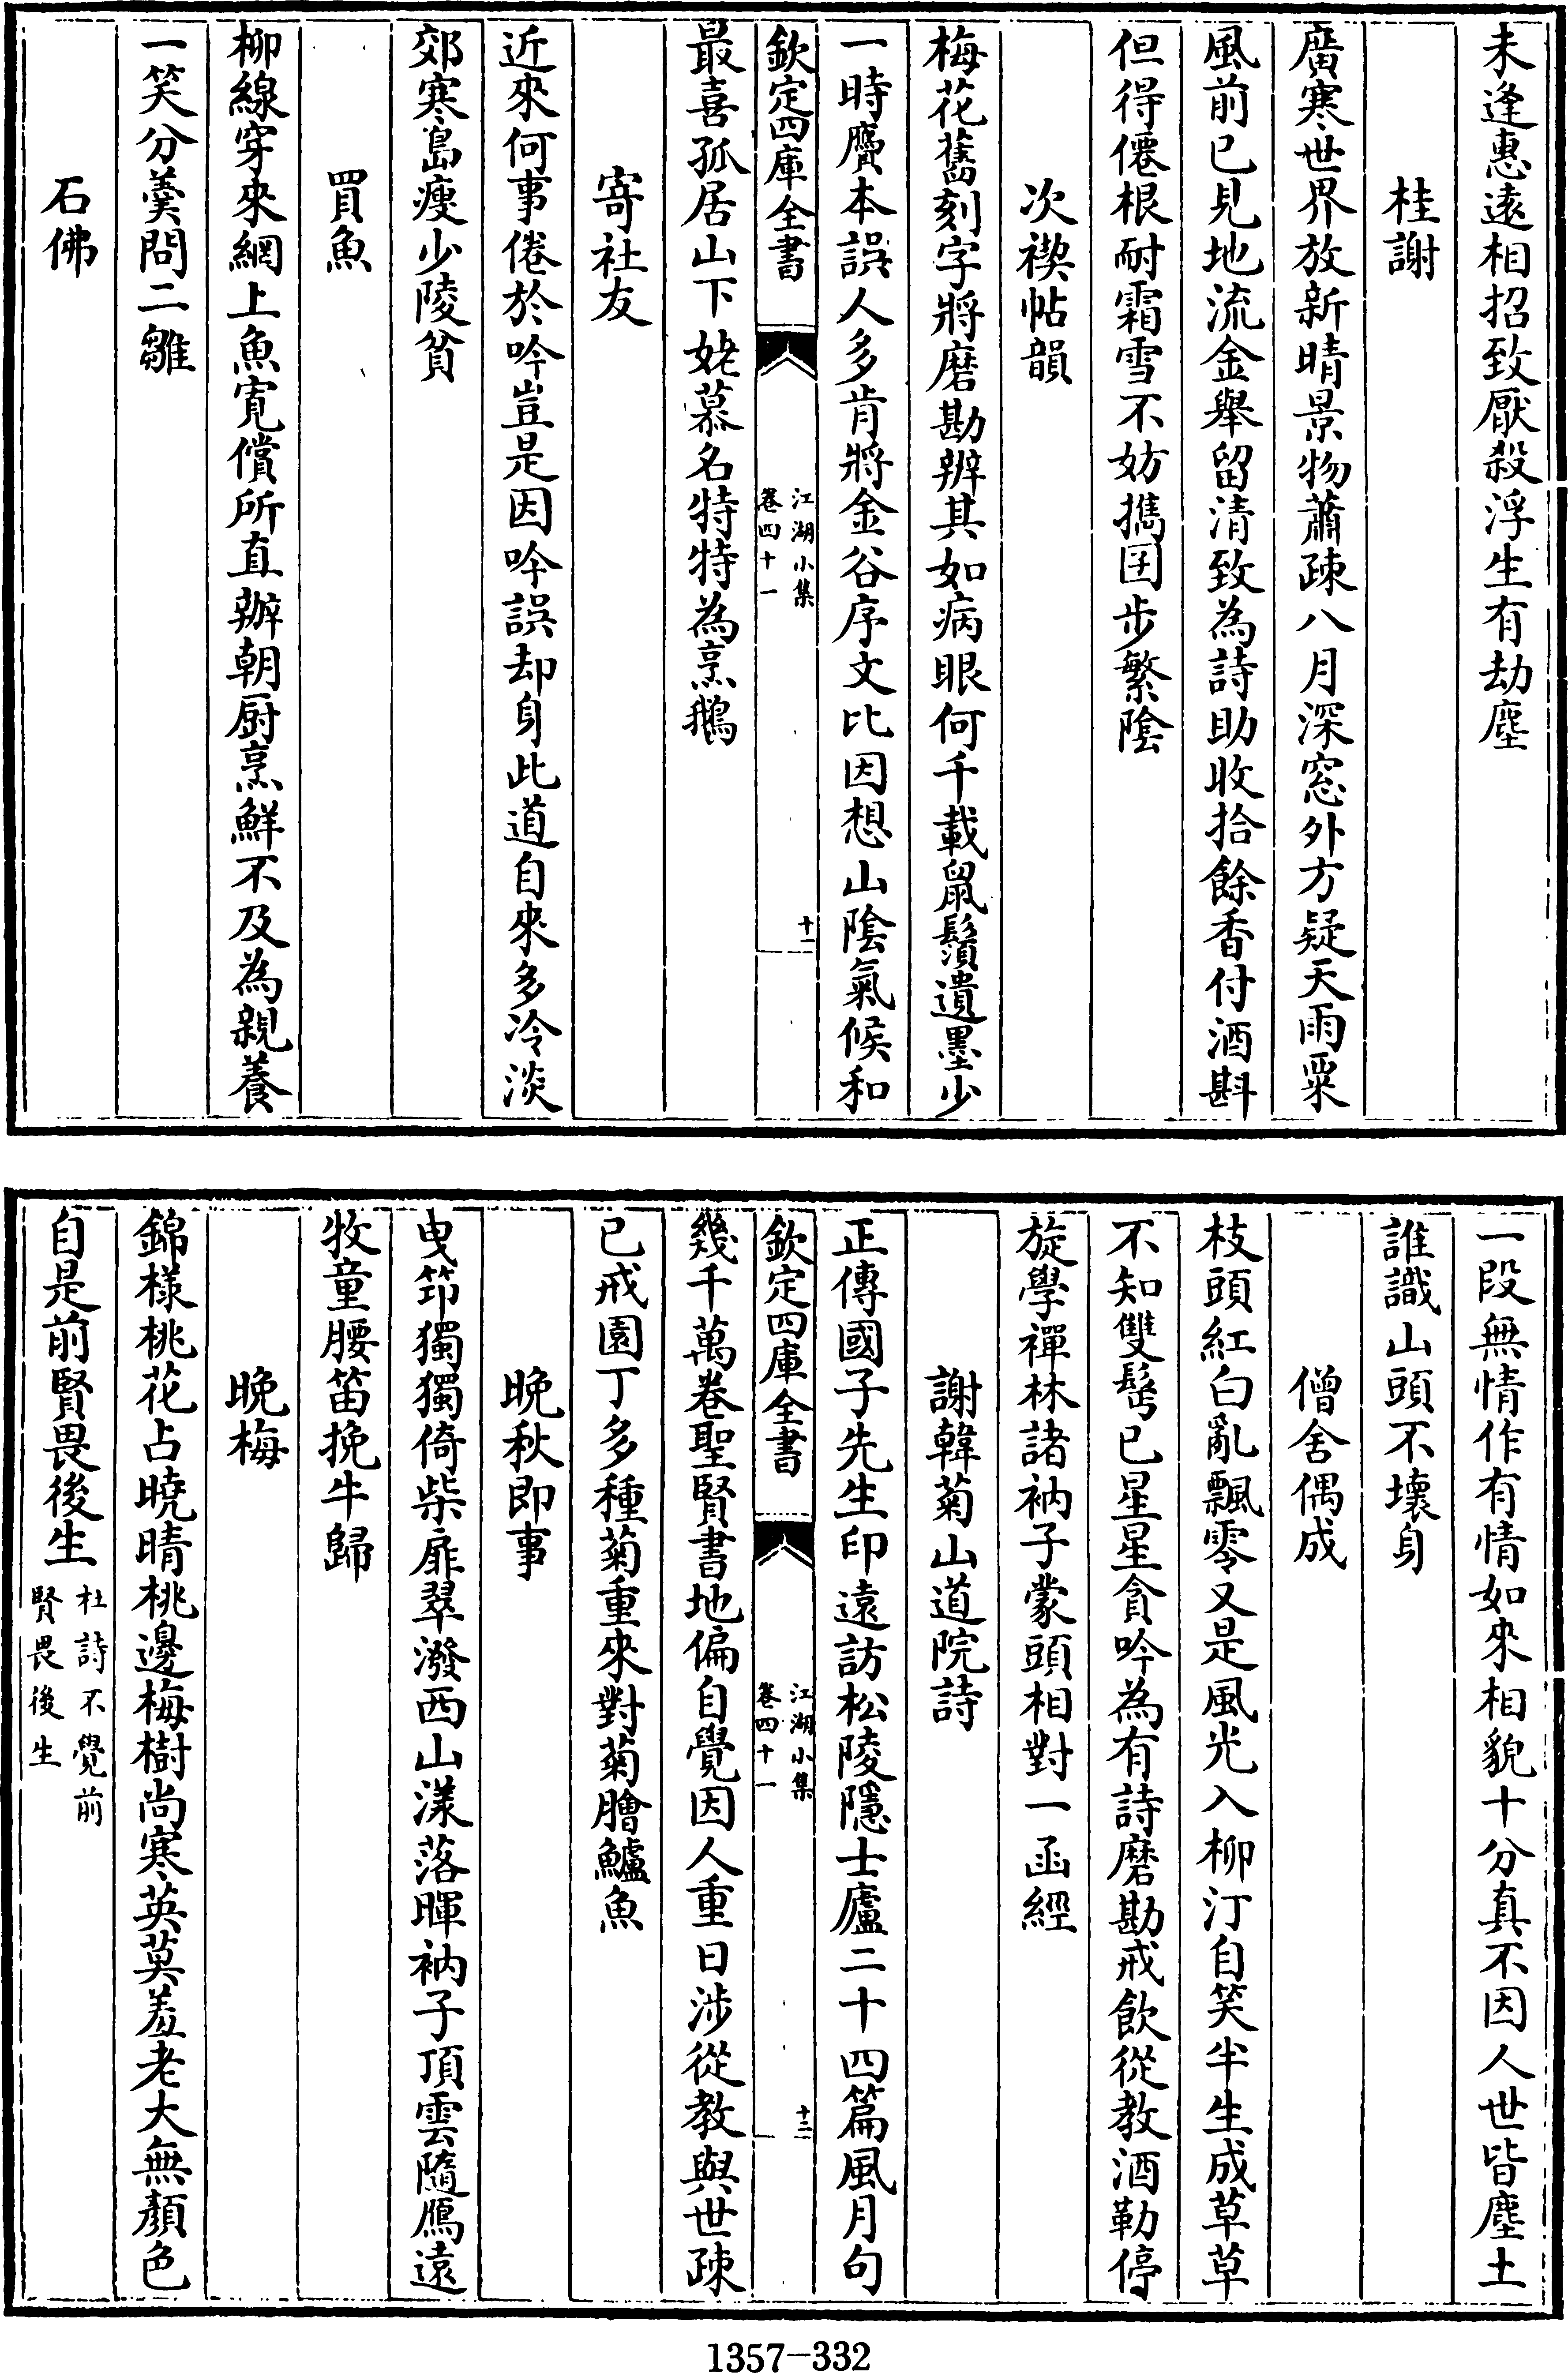 未逢惠遠相招致厭殺浮生有劫塵
桂謝
廣寒世界放新晴景物蕭疎八月深窓外方疑天雨粟
風前已見地流金舉留清致為詩助收拾餘香付酒斟
但得僊根耐霜雪不妨攜囯步繁陰
次禊帖韻
梅花舊刻字將磨勘辨其如病眼何千載鼠鬚遺墨少
一時贗本誤人多肯將金谷序文比因想山陰氣候和
欽定四庫全書
江湖小集
卷四十一
十一
最喜孤居山下姥慕名特特為烹鵝
寄社友
近來何事倦於吟豈是因吟誤却身此道自來多冷淡
郊寒島瘦少陵貧
買魚
柳線穿來網上魚寛償所直辦朝厨烹鮮不及為親養
一笑分羹問二雛
石佛
一段無情作有情如來相貌十分真不因人世皆塵土
誰識山頭不壞身
僧舍偶成
枝頭紅白亂飄零又是風光入柳汀自笑半生成草草
不知雙髩已星星貪吟為有詩磨勘戒飲從教酒勒停
旋學禪林諸衲子蒙頭相對一函經
謝韓菊山道院詩
正傳國子先生印遠訪松陵隱士廬二十四篇風月句
欽定四庫全書
江湖小集
卷四十一
十二
幾千萬卷聖賢書地偏自覺因人重日涉從教與世疎
已戒園丁多種菊重來對菊膾鱸魚
晚秋即事
曳笻獨獨倚柴扉翠潑西山漾落暉衲子頂雲隨鴈遠
牧童腰笛挽牛歸
晚梅
錦様桃花占曉晴桃邊梅樹尚寒英莫羞老大無顏色
自是前賢畏後生杜詩不覺前
賢畏後生
1357-332